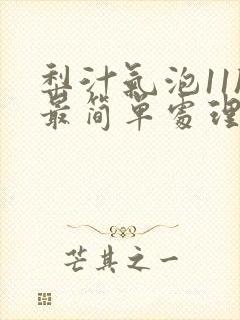 梨汁氣泡11
最简单處理
芒其之一